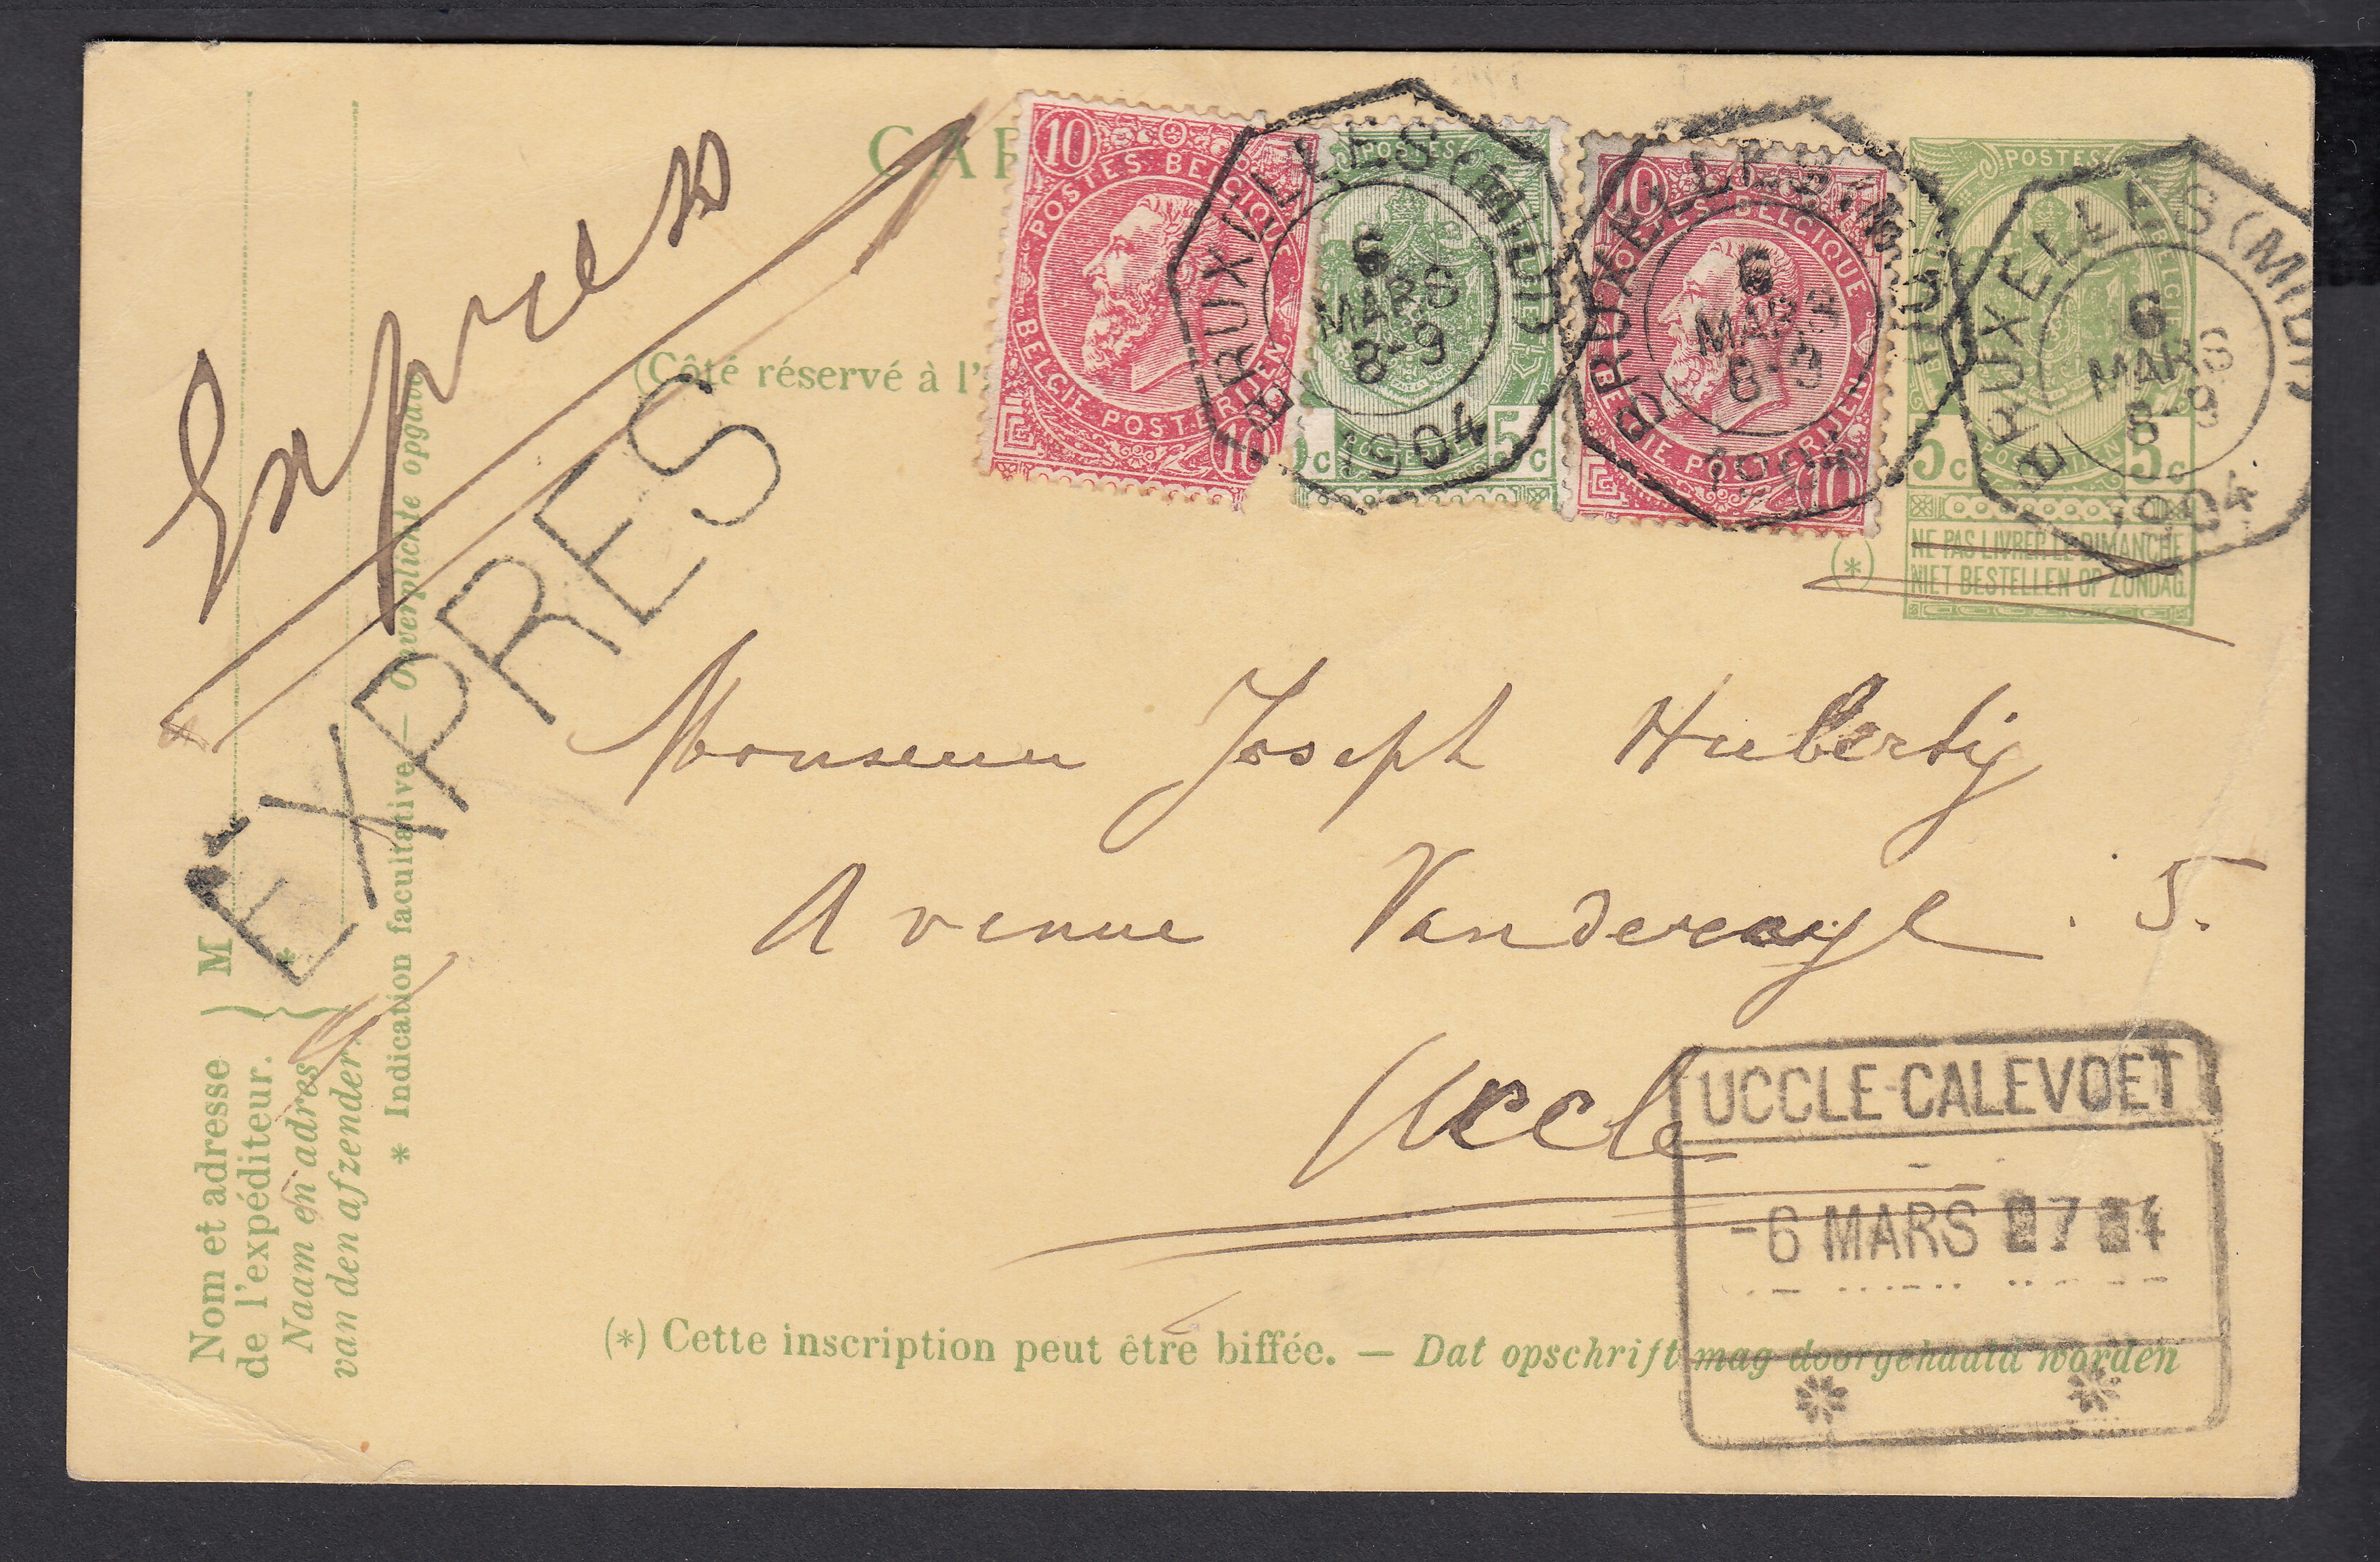 CAR
(Côté réservé à l'
Expres
EXPRES
10 POSTES BELGIQUE
BELGIE POSTERIJEN 10
POSTES
5c
10 POSTES BELGIQUE
BELGIE POSTERIJEN 10
POSTES
BELGIE
5c 5c
NE PAS LIVRER LE DIMANCHE
NIET BESTELLEN OP ZONDAG.
(*)
BRUXELLES (MIDI)
6
MARS
8-9
1904
BRUXELLES (MIDI)
6
MARS
8-9
1904
BRUXELLES (MIDI)
6
MARS
8-9
1904
Monsieur Joseph Huberty
Avenue 5.
Uccle
UCCLE-CALEVOET
-6 MARS
(*) Cette inscription peut être biffée. — Dat opschrift mag doorgehaald worden
Nom et adresse
de l'expéditeur.
Naam en adres
van den afzender.
M
*
* Indication facultative — Onverplichte opgave